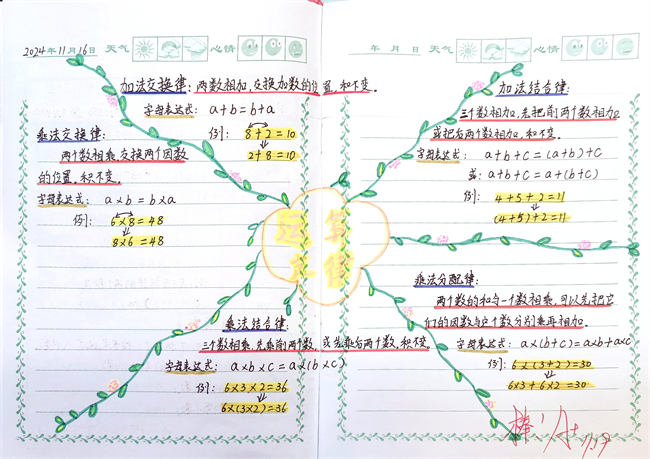 2024年11月16日 天气 心情
年 月 日 天气 心情
加法交换律：两数相加，交换加数的位置，和不变。
字母表达式：a+b=b+a
例：8+2=10
2+8=10
乘法交换律：
两个数相乘，交换两个因数
的位置，积不变。
字母表达式：a×b=b×a
例：6×8=48
8×6=48
乘法结合律：
三个数相乘，先乘前两个数，或先乘后两个数，积不变。
字母表达式：a×b×c=a×(b×c)
例：6×3×2=36
6×(3×2)=36
运算
定律
加法结合律：
三个数相加，先把前两个数相加
或把后两个数相加，和不变。
字母表达式：a+b+c=(a+b)+c
或：a+b+c=a+(b+c)
例：4+5+2=11
(4+5)+2=11
乘法分配律：
两个数的和与一个数相乘，可以先把它
们的因数与这个数分别乘再相加。
字母表达式：a×(b+c)=a×b+a×c
例：6×(3+2)=30
6×3+6×2=30
棒！